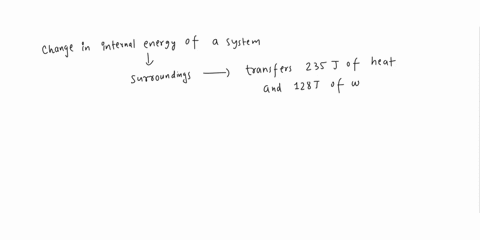 Change in internal energy of a system
surroundings → transfers 235 J of heat
and 128 J of w